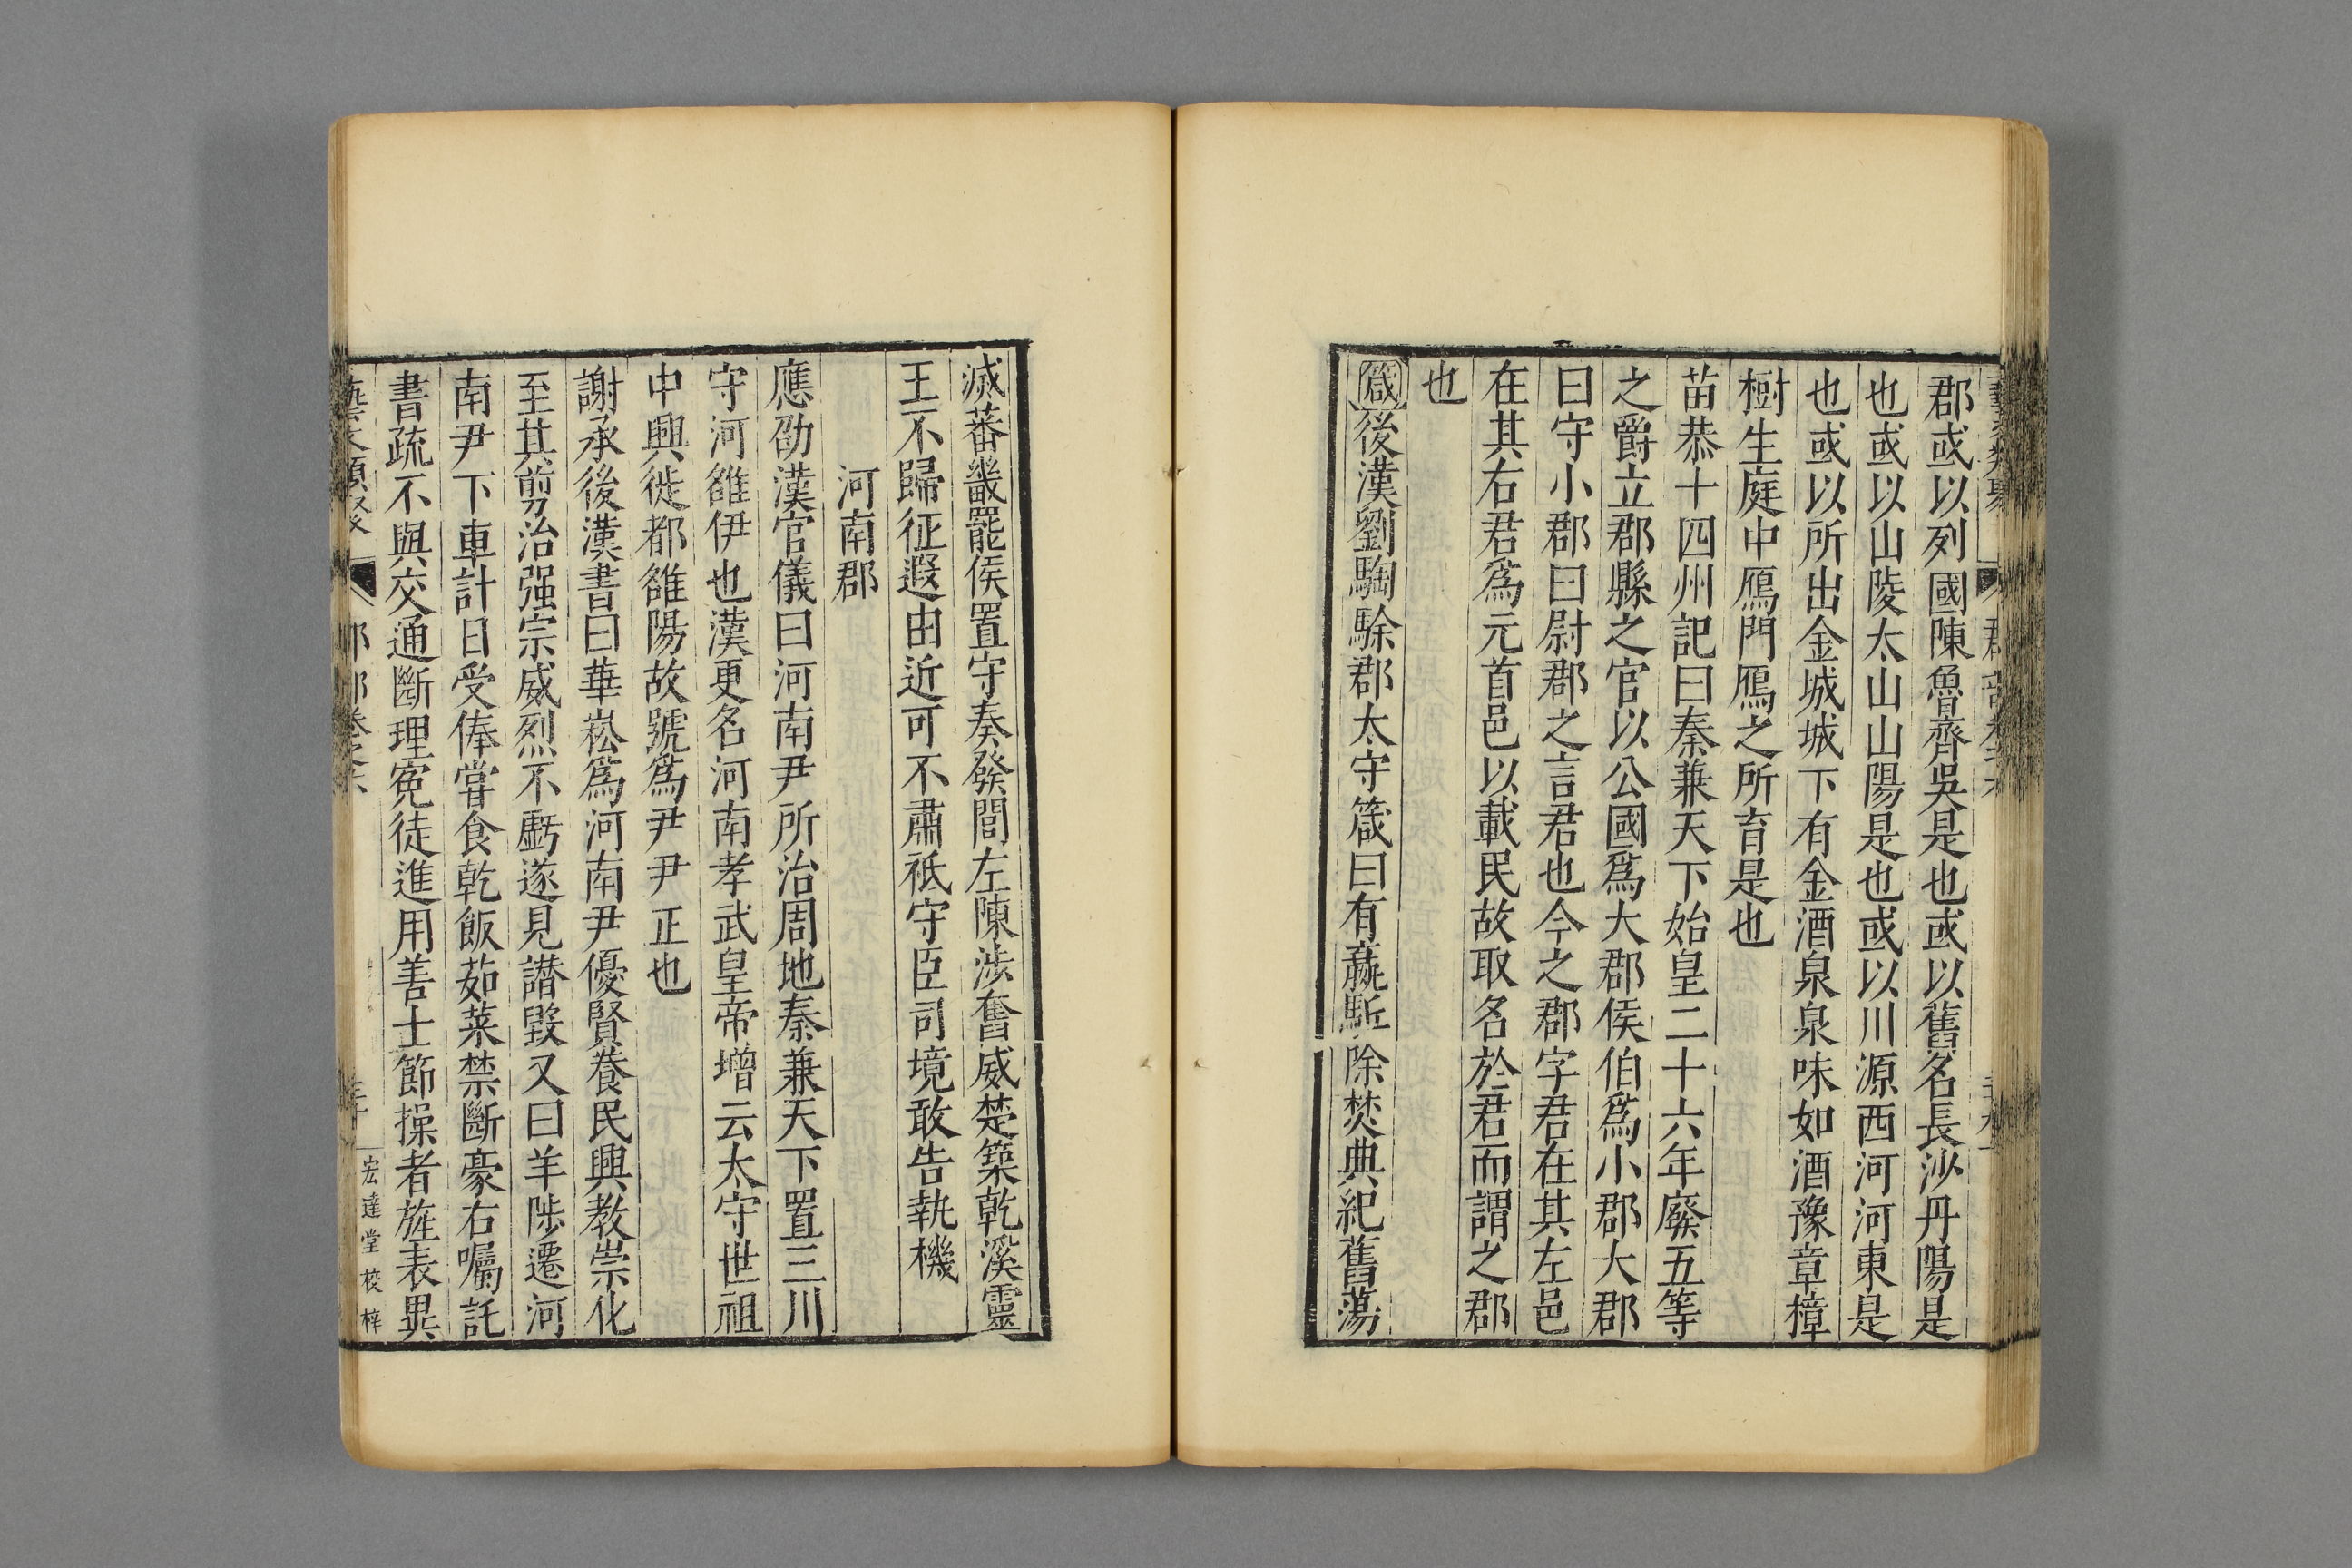 郡或以列國陳魯齊吳是也或以舊名長沙丹陽是
也或以山陵太山山陽是也或以川源西河河東是
也或以所出金城城下有金酒泉泉味如酒豫章樟
樹生庭中鴈門鴈之所育是也
苗恭十四州記曰秦兼天下始皇二十六年廢五等
之爵立郡縣之官以公國爲大郡侯伯爲小郡大郡
曰守小郡曰尉郡之言君也今之郡字君在其左邑
在其右君爲元首邑以載民故取名於君而謂之郡
也
箴後漢劉騊駼郡太守箴曰有嬴駈除焚典紀舊蕩
滅蕃畿罷侯置守奏發閭左陳涉奮威楚築乾溪靈
王不歸征遐由近可不肅祗守臣司境敢告執機
河南郡
應劭漢官儀曰河南尹所治周地秦兼天下置三川
守河雒伊也漢更名河南孝武皇帝增云太守世祖
中興徙都雒陽故號爲尹尹正也
謝承後漢書曰華崧爲河南尹優賢養民興教崇化
至其剪治强宗威烈不虧遂見譖毀又曰羊陟遷河
南尹下車計日受俸甞食乾飯茹菜禁斷豪右囑託
書疏不與交通斷理寃徒進用善士節操者旌表異
宏達堂校梓